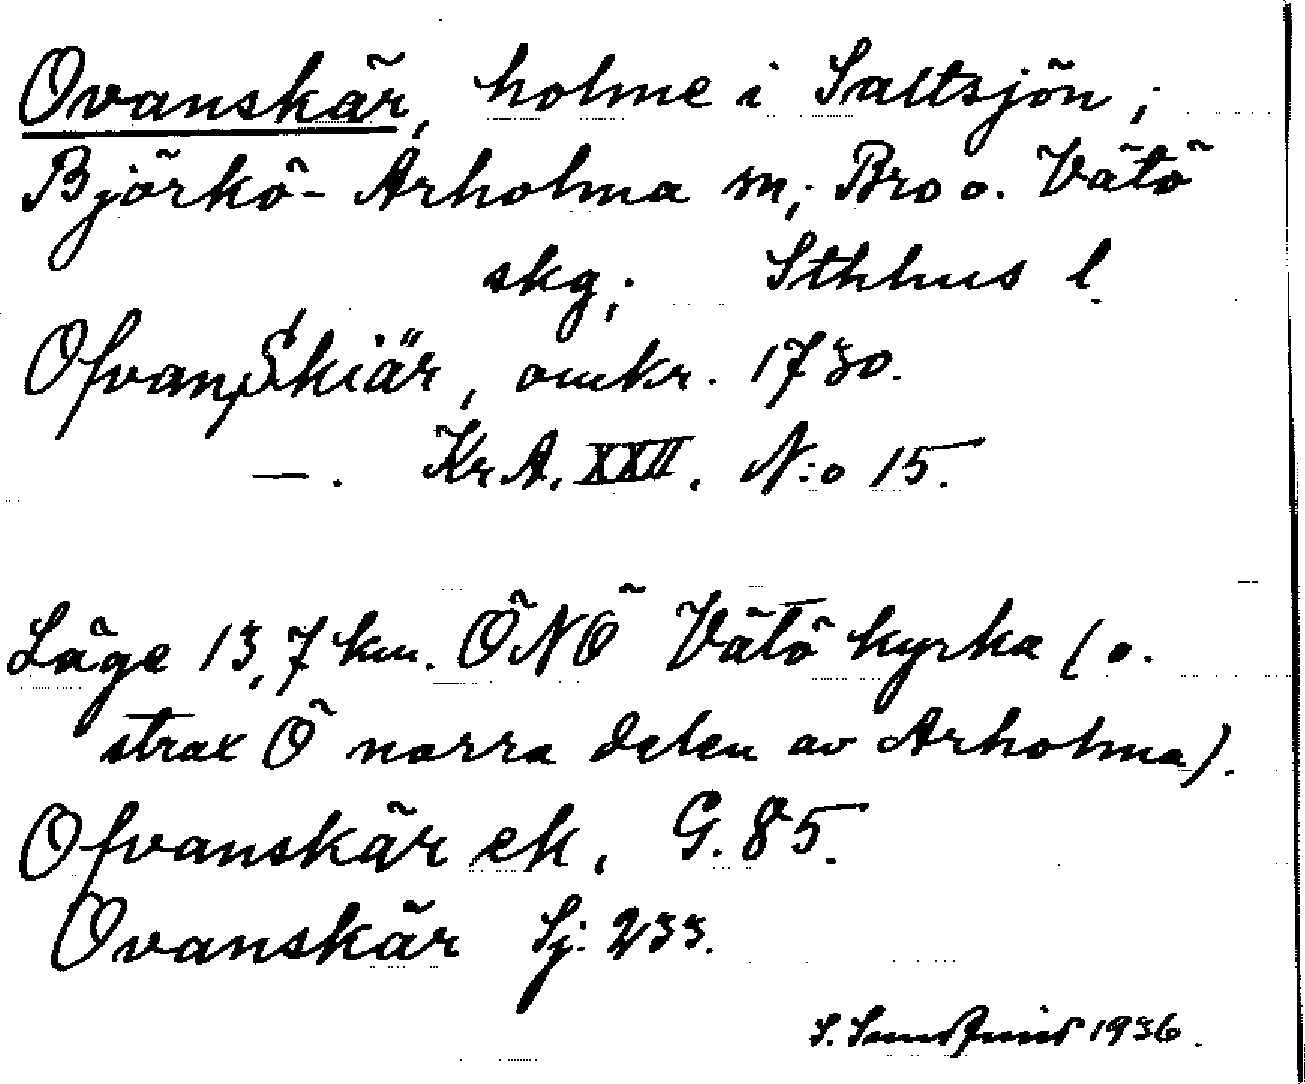 Ovanskär, holme i Saltsjön;
Björkö-Arholma sn; Bro o. Vätö
skg; Sthlms l.
OfvanSkiär, omkr. 1730.
—. KrA. XXII. N:o 15.
Läge 13,7 km. ÖNÖ Vätö kyrka (o.
strax Ö norra delen av Arholma).
Ofvanskär ek. G. 85.
Ovanskär Sj: 233.
S. 1936.